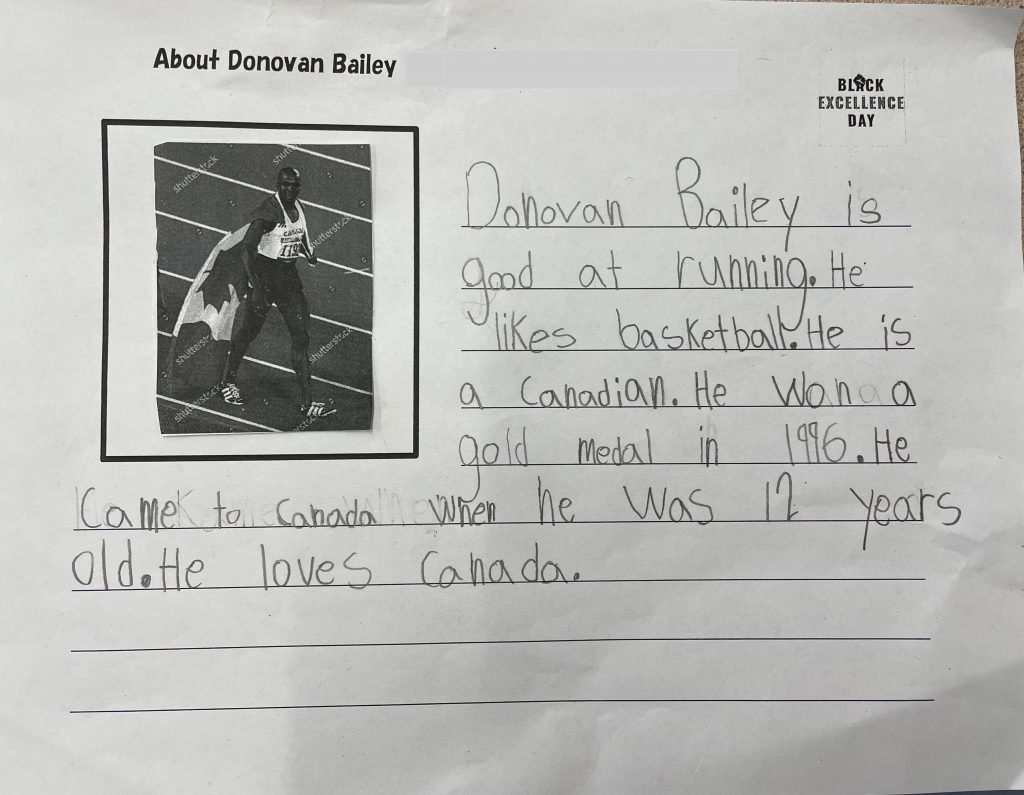 About Donovan Bailey
BLACK
EXCELLENCE
DAY
shutterstock
shutterstock
shutterstock
shutterstock
shutterstock
shutterstock
CANADA
Donovan Bailey is
good at running. He
likes basketball. He is
a Canadian. He Wan a
gold medal in 1996. He
Came to Canada when he Was 12 years
old. He loves Canada.